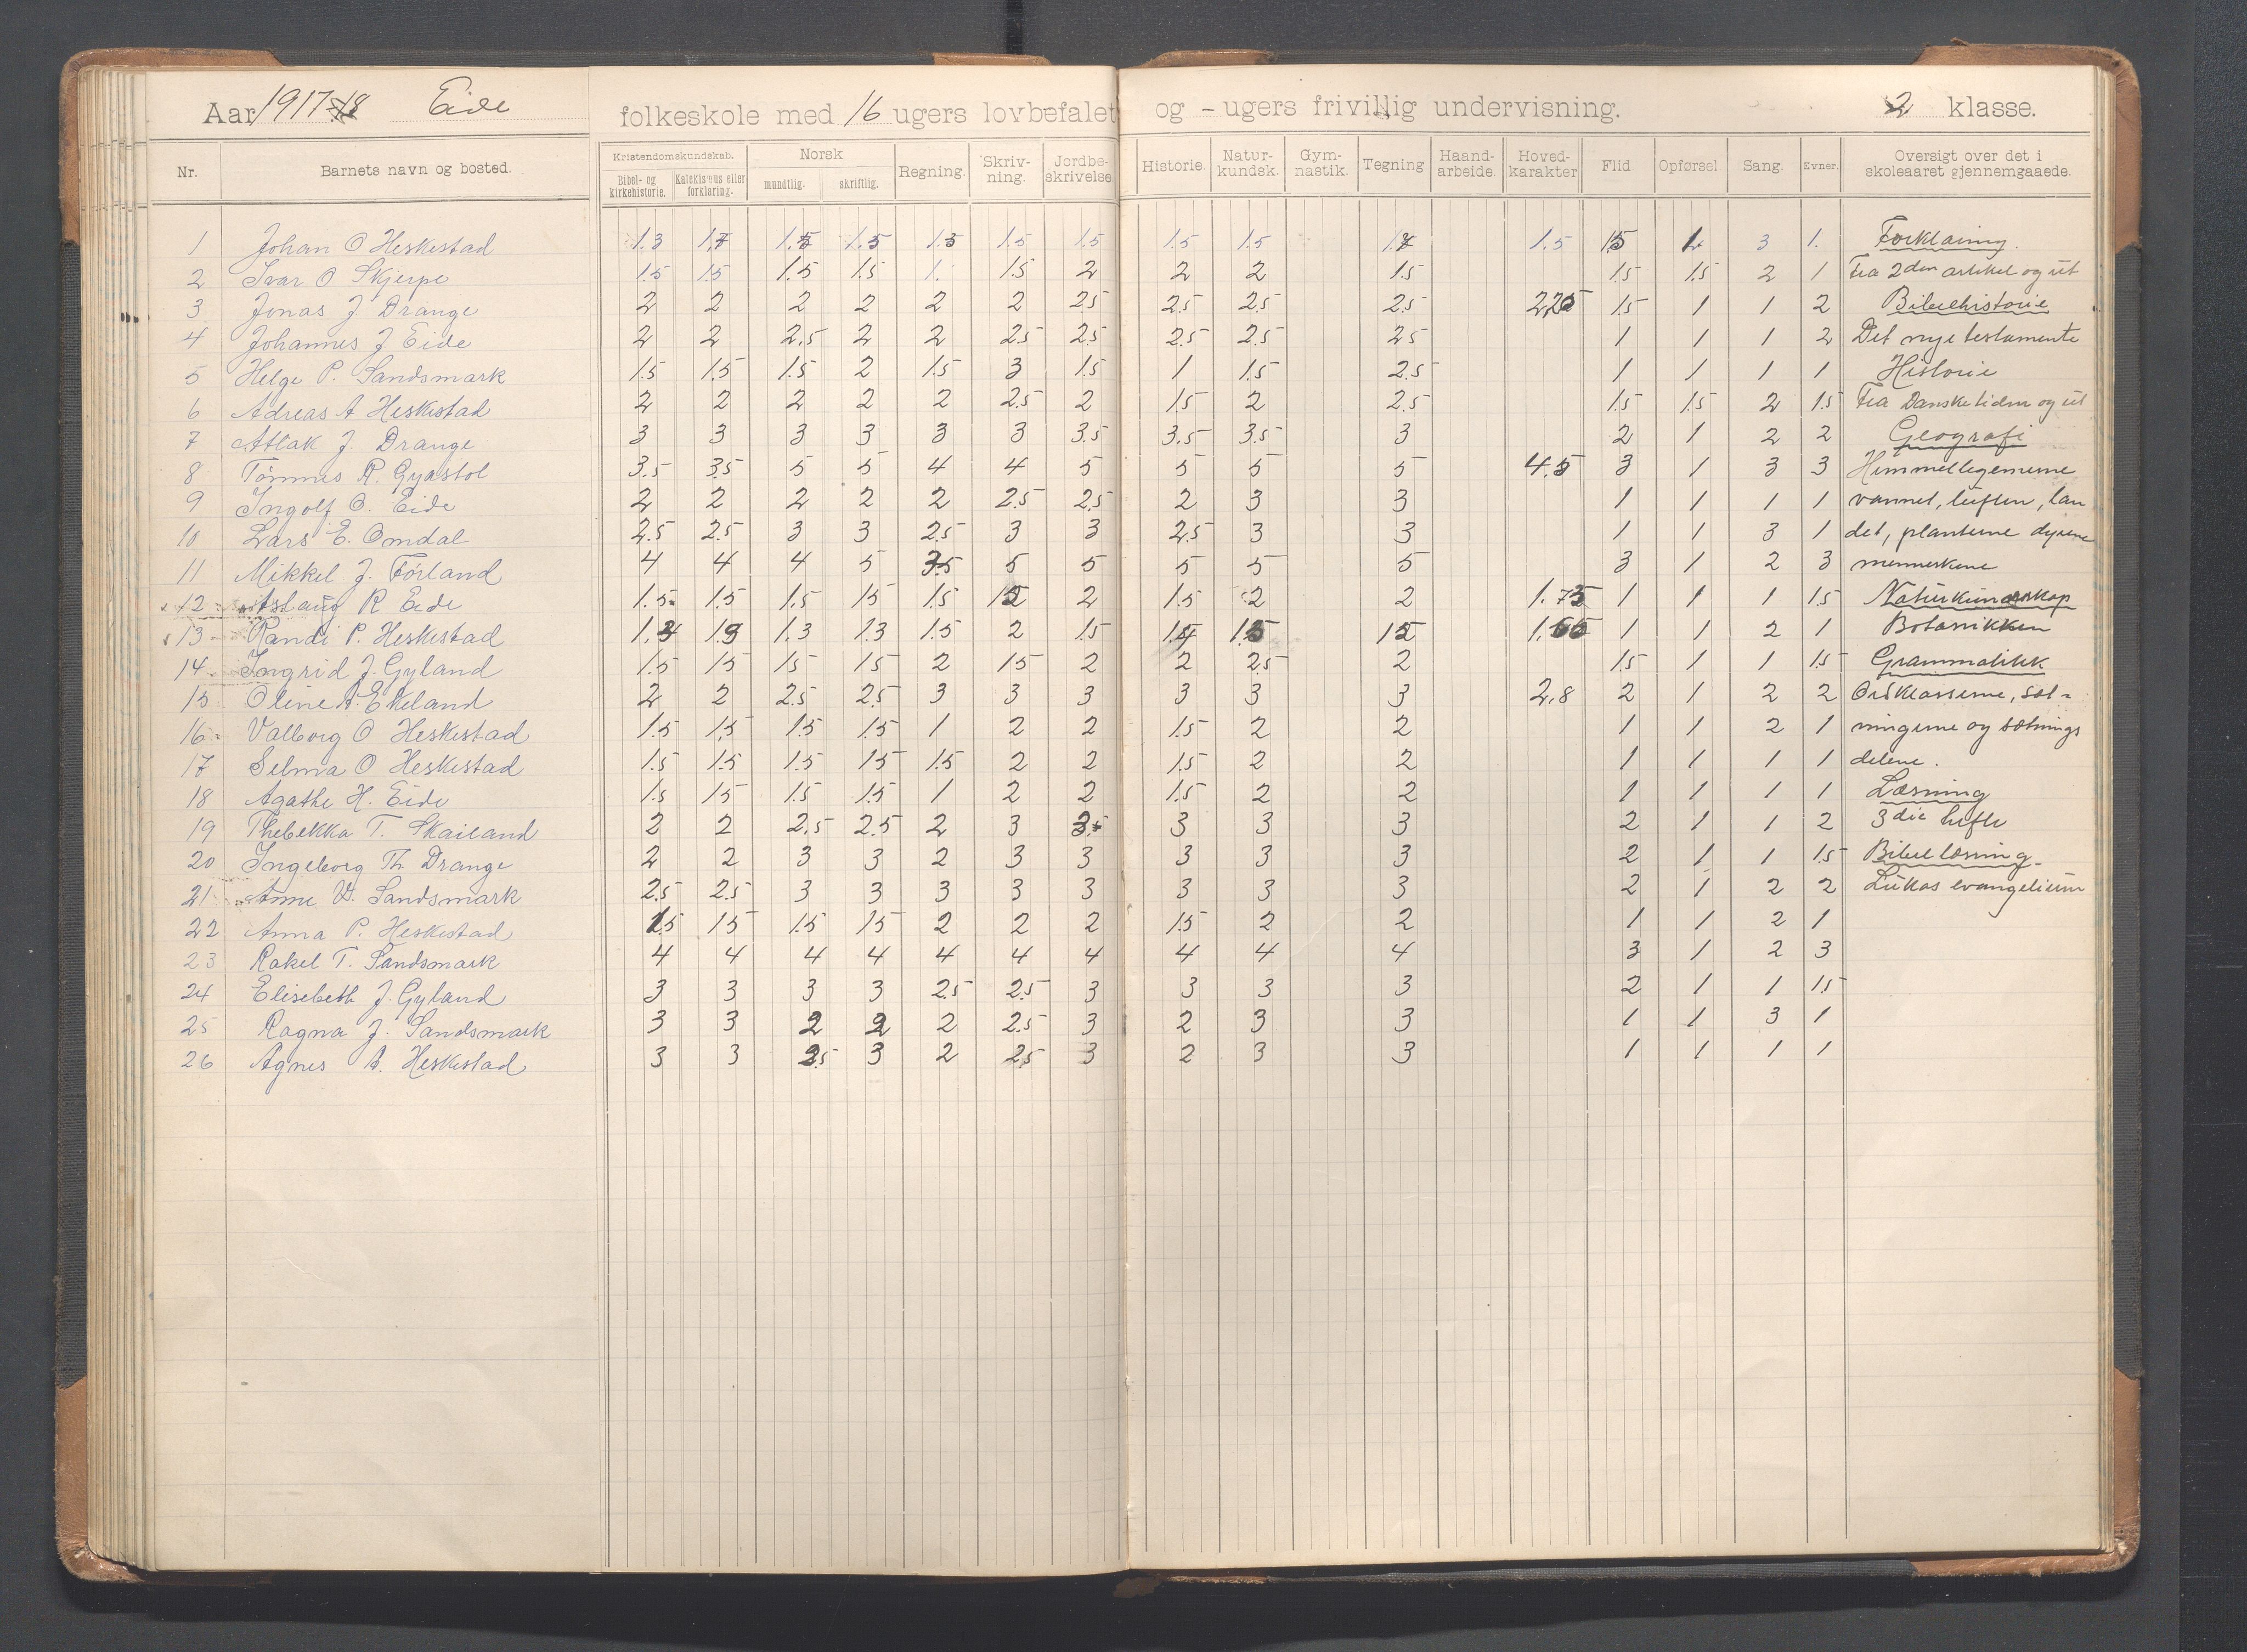 Aar 1917-18 Eide folkeskole med 16 ugers lovbefalet og - ugers frivillig undervisning. 2 klasse.
Nr. Barnets navn og bosted. Kristendomskundskab. Norsk Regning. Skriv-ning. Jordbe-skrivelse. Historie. Natur-kundsk. Gym-nastik. Tegning Haand-arbeide. Hoved-karakter Flid Opførsel Sang. Evner. Oversigt over det i skoleaaret gjennemgaaede.
Bibel- og kirkehistorie. Katekismus eller forklaring. mundtlig. skriftlig.
1 Johan O Heskestad 1.3 1.7 1.5 1.5 1.5 1.5 1.5 1.5 1.5 1.5 15 1 3 1. Forklaring.
2 Ivar O Skjerpe 1.5 1.5 1.5 1.5 1. 1.5 2 2 2 1.5 1.5 1.5 2 1 Fra 2den artikel og ut
3 Jonas J Drange 2 2 2 2 2 2 2.5 2.5 2.5 2.5 1.5 1 1 2 Bibelhistorie
4 Johannes J Eide 2 2 2.5 2 2 2.5 2.5 2.5 2.5 2.5 1 1 1 2 Det nye testamente
5 Helge P. Sandsmark 1.5 1.5 1.5 2 1.5 3 1.5 1 1.5 2.5 1 1 1 1 Historie
6 Adreas A Heskestad 2 2 2 2 2 2.5 2 1.5 2 2.5 1.5 1.5 2 1.5 Fra Dansketiden og ut
7 Atlak J. Drange 3 3 3 3 3 3 3.5 3.5 3.5 3 2 1 2 2 Geografi
8 Tönnes R. Gyastol 3.5 3.5 5 5 4 4 5 5 5 5 4.5 3 1 3 3 Himmellegemerne
9 Ingolf O. Eide 2 2 2 2 2 2.5 2.5 2 3 3 1 1 1 1 vannet, luften, lan
10 Lars E. Omdal 2.5 2.5 3 3 2.5 3 3 2.5 3 3 1 1 3 1 det, planterne dyrene
11 Mikkel J. Förland 4 4 4 5 3.5 5 5 5 5 5 3 1 2 3 menneskene
12 Aslaug R Eide 1.5 1.5 1.5 1.5 1.5 15 2 1.5 2 2 1.75 1 1 1 1.5 Naturkundskap
13 Randi P. Heskestad 1.3 1.3 1.3 1.3 1.5 2 1.5 1.5 1.5 15 1.65 1 1 2 1 Botanikken
14 Ingrid J. Gyland 1.5 1.5 1.5 1.5 2 1.5 2 2 2.5 2 1.5 1 1 1.5 Grammatikk
15 Oline A. Ekeland 2 2 2.5 2.5 3 3 3 3 3 3 2.8 2 1 2 2 Ordklasserne, sæt-
16 Valborg O Heskestad 1.5 1.5 1.5 1.5 1 2 2 1.5 2 2 1 1 2 1 ningerne og sætnings
17 Selma O Heskestad 1.5 1.5 1.5 1.5 1.5 2 2 1.5 2 2 1 1 1 1 delene.
18 Agathe H. Eide 1.5 1.5 1.5 1.5 1 2 2 1.5 2 2 1 1 1 1 Læsning
19 Thebekka T. Skailand 2 2 2.5 2.5 2 3 3.5 3 3 3 2 1 1 2 3die hefte
20 Ingeborg Th Drange 2 2 3 3 2 3 3 3 3 3 2 1 1 1.5 Bibellæsning.
21 Anne V. Sandsmark 2.5 2.5 3 3 3 3 3 3 3 3 2 1 2 2 Lukas evangelium
22 Anna P. Heskestad 1.5 1.5 1.5 1.5 2 2 2 1.5 2 2 1 1 2 1
23 Rakel T. Sandsmark 4 4 4 4 4 4 4 4 4 4 3 1 2 3
24 Elisebeth J. Gyland 3 3 3 3 2.5 2.5 3 3 3 3 2 1 1 1.5
25 Ragna J. Sandsmark 3 3 2 2 2 2.5 3 2 3 3 1 1 3 1
26 Agnes A. Heskestad 3 3 2.5 3 2 2.5 3 2 3 3 1 1 1 1